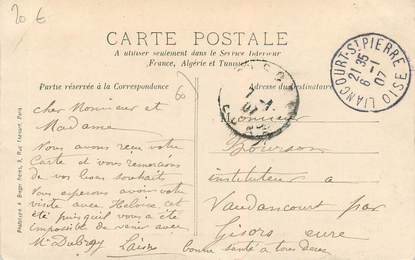 20 €
CARTE POSTALE
A utiliser seulement dans le Service Intérieur
France, Algérie et Tunisie
Partie réservée à la Correspondance
Adresse du destinataire
LIANCOURT-ST-PIERRE
OISE
21 35
6 -1
07
60
cher Monsieur et
Madame
Nous avons reçu votre
Carte et vous remercions
de vos bons souhaits
Nous esperons avoir votre
visite avec Héloïse cet
été puisqu'il vous a été
impossible de venir avec
Mr
Monsieur
instituteur a
Vaudancourt par
Gisors eure
bonne santé a tous deux
Phototypie A. Breger Frères, 9, Rue Thénard, Paris